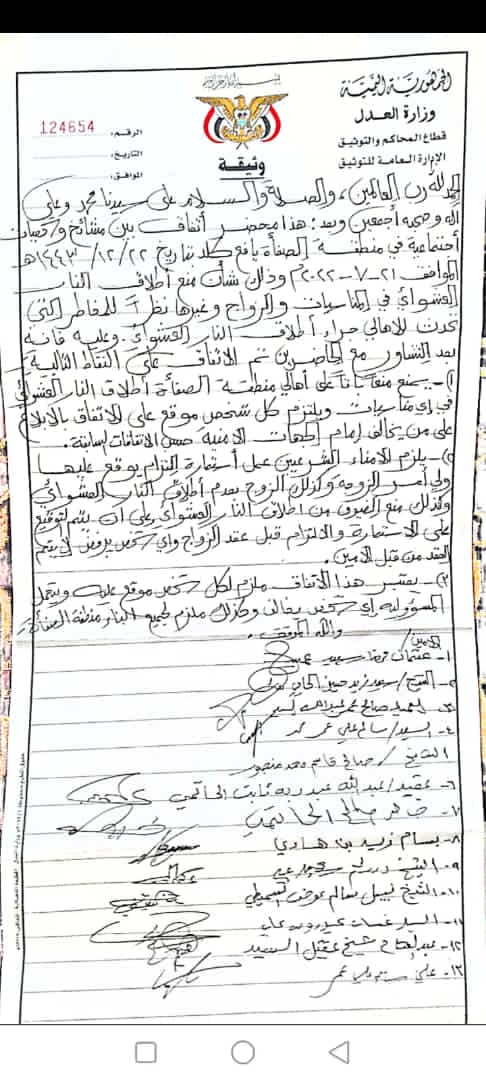 بسم الله الرحمن الرحيم
الجمهورية اليمنية
وزارة العدل
قطاع المحاكم والتوثيق
الإدارة العامة للتوثيق
الرقم: 124654
التاريخ:
الموافق:
وثيقة
الحمد لله رب العالمين، والصلاة والسلام على سيدنا محمد وعلى
اله وصحبه أجمعين وبعد: هذا محضر أتفاق بين مشائخ و
أجتماعية في منطقة الصفأة يافع كلد بتاريخ ١٤٤٣/١٢/٢٢هـ
الموافق ٢١-٧-٢٠٢٢م وذلك بشأن منع أطلاق النار
العشوائي في المناسبات والزواج وغيرها نظراً للمخاطر التي
تحدث للاهالي جراء أطلاق النار العشوائي. وعليه فانه
بعد التشاور مع الحاضرين تم الاتفاق على النقاط التالية
١)- يمنع منعاً باتاً على أهالي منطقة الصفأة أطلاق النار العشوائي
في اي مناسبات ويلتزم كل شخص موقع على الاتفاق بالابلاغ
على من يخالف إمام الجهات الامنية حسب الاتفاقات السابقة.
٢)- يلزم الامناء الشرعيين عمل أستمارة التزام يوقع عليها
ولي أمر الزوجه وكذلك الزوج بعدم أطلاق النار العشوائي
وكذلك منع الضيوف من اطلاق النار العشوائي على ان يتم التوقيع
على الاستمارة والالتزام قبل عقد الزواج واي شخص يرفض لا يتم
العقد من قبل الامين.
٣)- يعتبر هذا الاتفاق ملزم لكل شخص موقع عليه ويتحمل
المسؤوليه اي شخص يخالف وكذلك ملزم لجميع ابناء منطقة الصفأة
والله الموفق.
١- عثمان سعيد
٢- الشيخ/ سعيد زيد حسين
٣- صالح محمد عبدالله
٤- السيد/ سالم علي عمر
الشيخ/ صالح قاسم محمد منصور
٦- عقيد/ عبدالله عبدربه ثابت الخاتمي
٧- صالح
٨- بسام زيد بن هادي
٩- الشيخ
١٠- الشيخ نبيل سالم عوض
١١- السيد عيدروس علي
١٢- شيخ عقيل السيد
١٣- علي عمر